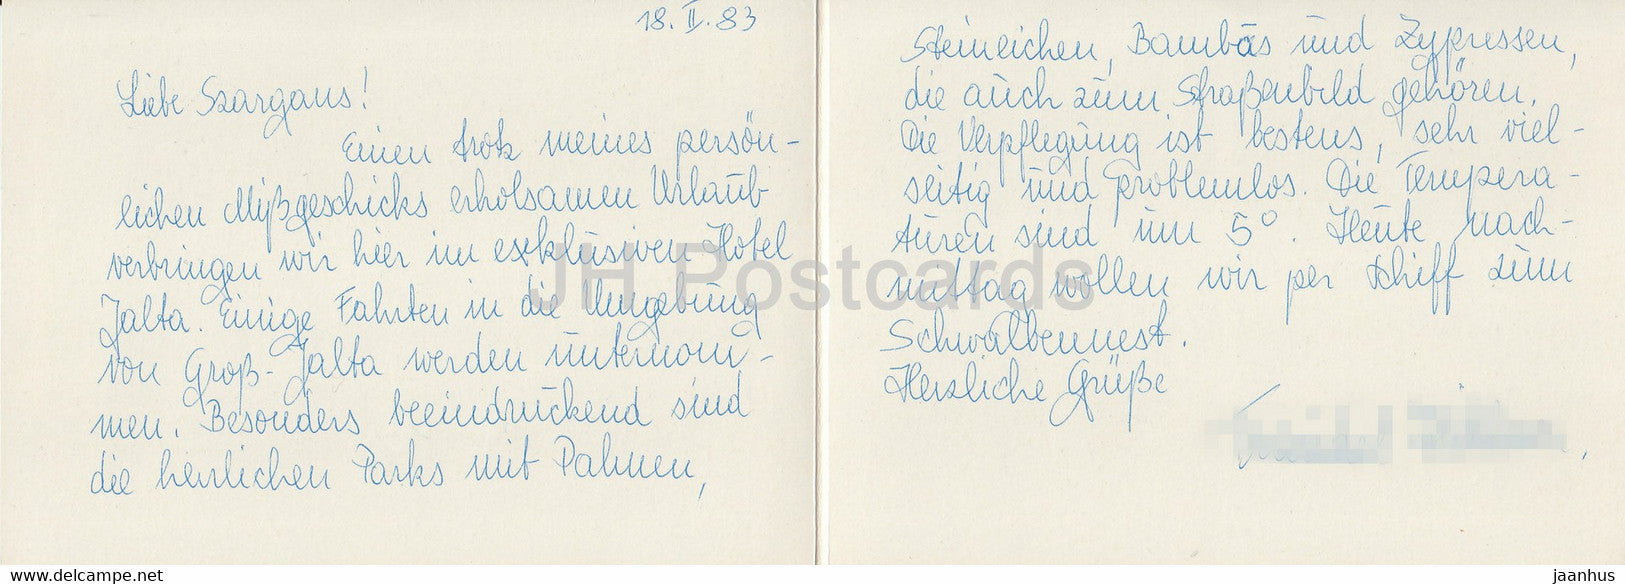 18. II. 83
Liebe Szargans!
Einen trotz meines persön-
lichen Mißgeschicks erholsamen Urlaub
verbringen wir hier im exklusiven Hotel
Jalta. Einige Fahrten in die Umgebung
von Groß-Jalta werden unternom-
men. Besonders beeindruckend sind
die herrlichen Parks mit Palmen,
Steineichen, Bambus und Zypressen,
die auch zum Straßenbild gehören.
Die Verpflegung ist bestens, sehr viel-
seitig und problemlos. Die Tempera-
turen sind um 5°. Heute nach-
mittag wollen wir per Schiff zum
Schwalbennest.
Herzliche Grüße
JH Postcards
https://jh-postcards.com/
jaanhus